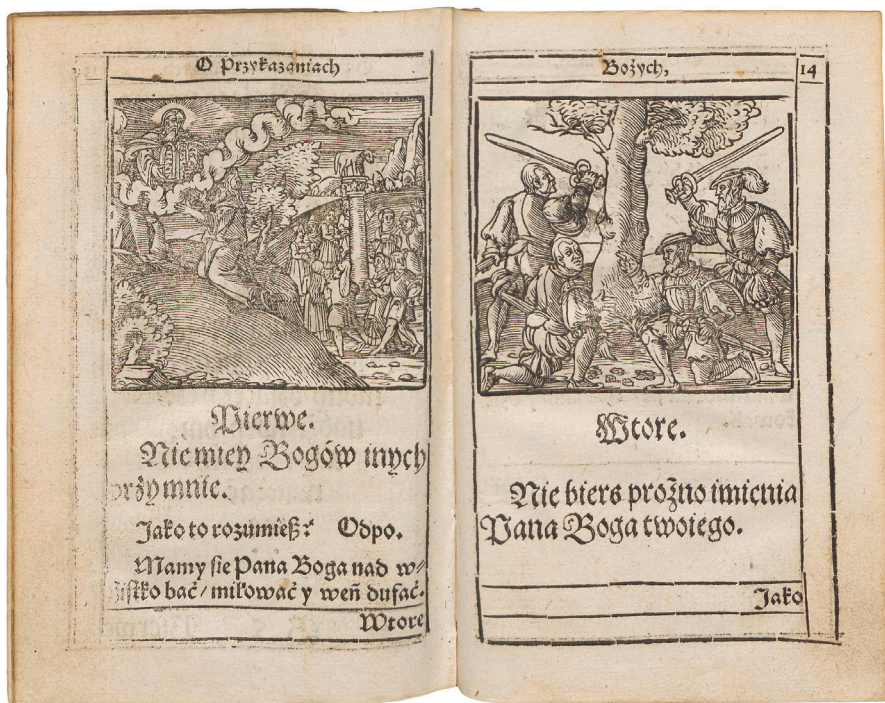 O Przykazaniach
Pierwe.
Nie miey Bogów inych
przy mnie.
Jako to rozumieß? Odpo.
Mamy sie Pana Boga nad w⸗
ßistko bać/ miłować y weń dufać.
Wtore
Bożych, 14
Wtore.
Nie biers prożno imienia
Pana Boga twoiego.
Jako